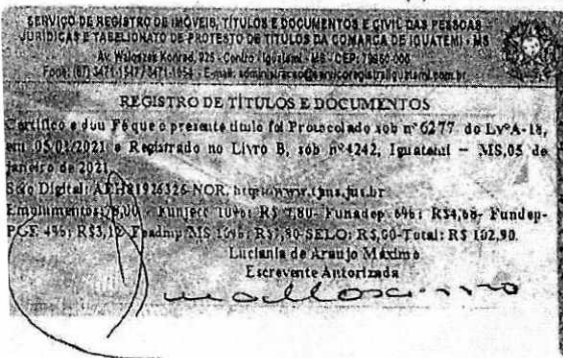 SERVIÇO DE REGISTRO DE IMÓVEIS, TÍTULOS E DOCUMENTOS E CIVIL DAS PESSOAS
JURÍDICAS E TABELIONATO DE PROTESTO DE TÍTULOS DA COMARCA DE IGUATEMI - MS
Av. Konrad, 925 - Centro - Iguatemi - MS - CEP: 79960-000
Fone: (67) 3471-1547 / 3471-1654 - E-mail:
REGISTRO DE TÍTULOS E DOCUMENTOS
Certifico e dou Fé que o presente título foi Protocolado sob nº 6277 do LvºA-18,
em 05/01/2021 e Registrado no Livro B, sob nº4242, Iguatemi – MS,05 de
janeiro de 2021.
Selo Digital: NOR, http://www.tjms.jus.br
Emolumentos: Funjecc 10%: R$ 7,80- Funadep 6%: R$4,68- Fundep-
PGE 4%: R$3,12 Feadmp/MS 10%: SELO: Total: R$ 102,90.
Luciania de Araujo Máximo
Escrevente Autorizada